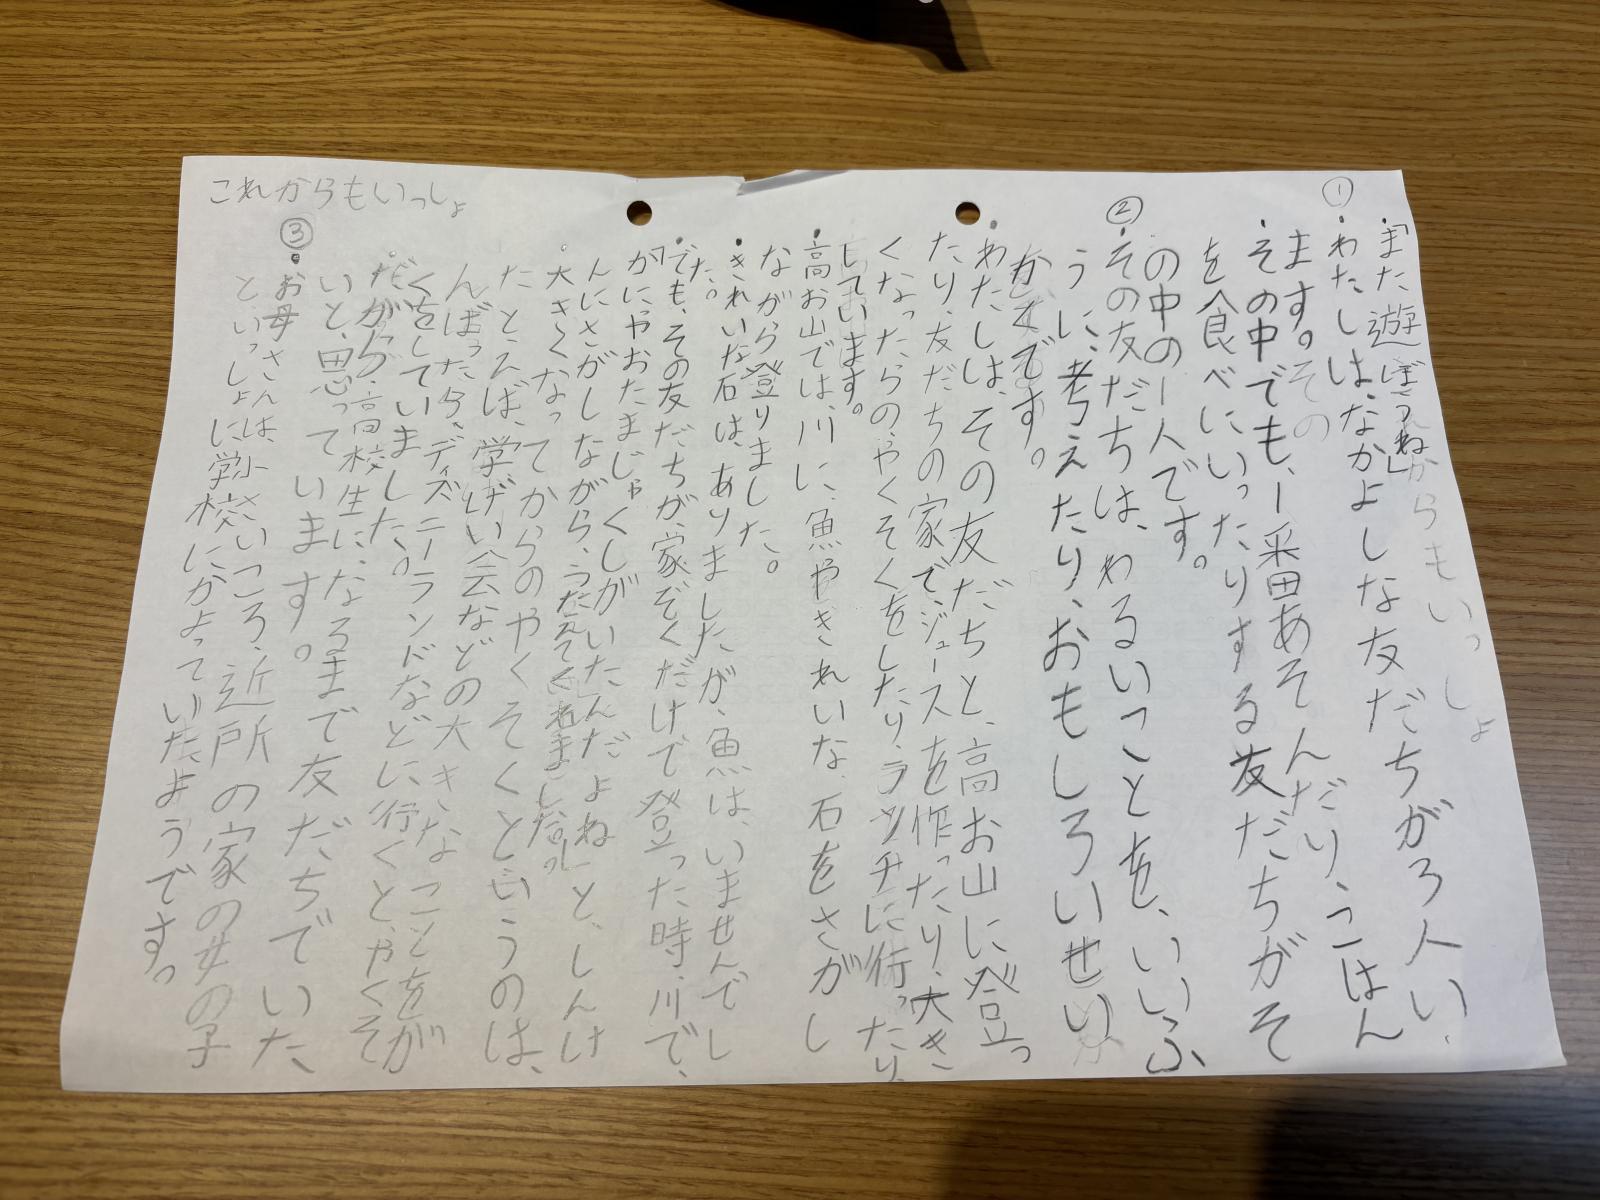 これからもいっしょ
①
・「また遊ぼうね」
・わたしは、なかよしな友だちが3人い
ます。
・その中でも、一番あそんだり、ごはん
を食べにいったりする友だちがそ
の中の一人です。
②
・その友だちは、わるいことを、いいふ
うに、考えたり、おもしろいせい
かくです。
・わたしは、その友だちと、高お山に登っ
たり、友だちの家で、ジュースを作ったり、大き
くなったらのやくそくをしたり、ランチに行ったり、
しています。
・高お山では、川に、魚やきれいな、石をさがし
ながら登りました。
・きれいな石は、ありましたが、魚は、いませんでし
た。
・「でも、その友だちが、家ぞくだけで登った時、川で、
かにやおたまじゃくしがいたんだよね」と、しんけ
んにさがしながら、うったえてくれました。
・大きくなってからのやくそくというのは、
たとえば、学げい会などの大きなことをが
んばったら、ディズニーランドなどに行くと、やくそ
くをしていました。
・だから、高校生に、なるまで友だちでいた
いと、思っています。
③
・お母さんは、小さいころ、近所の家の女の子
と、いっしょに、学校にかよっていたようです。